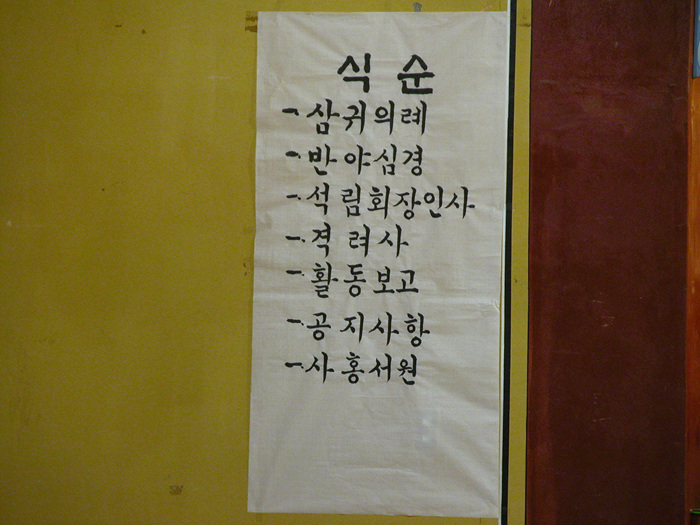 식 순
一. 삼귀의례
一. 반야심경
一. 석림회장인사
一. 격려사
一. 활동보고
一. 공지사항
一. 사홍서원